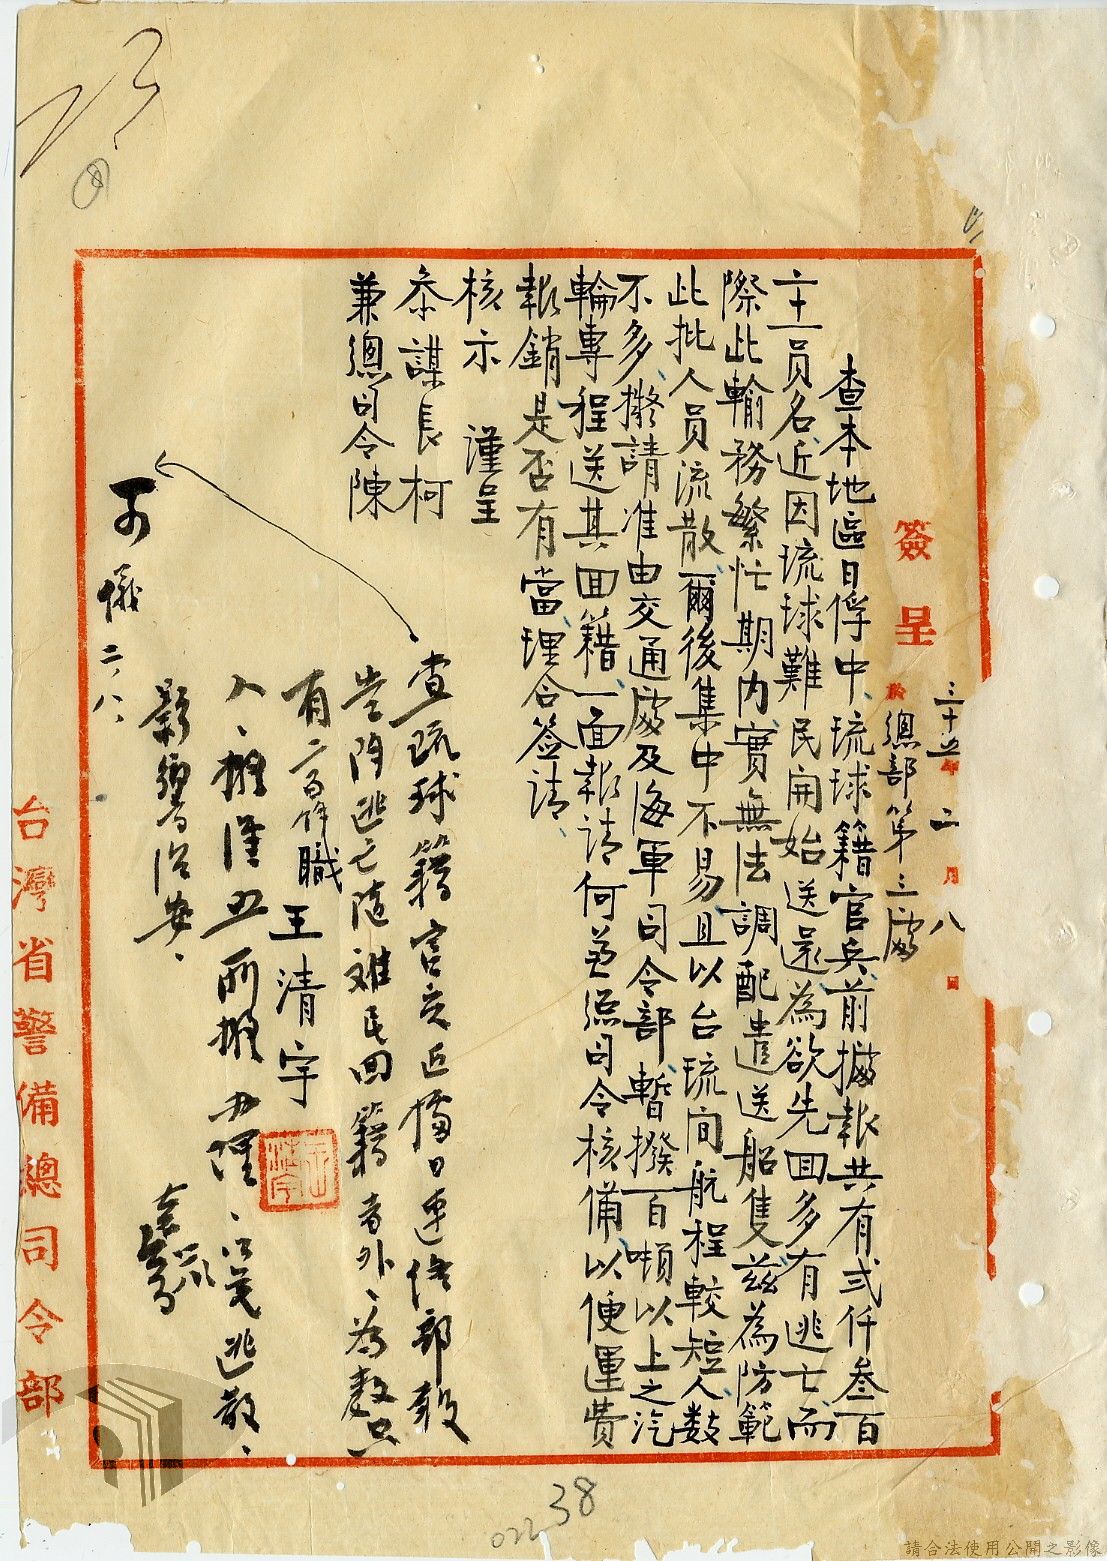 簽呈
三十五年二月八日
於總部第三處
查本地區日俘中琉球籍官兵前據報共有弍仟叁百
六十一員名近因琉球難民開始送還為欲先回多有逃亡而
際此輸務繁忙期內實無法調配遣送船隻茲為防範
此批人員流散爾後集中不易且以台琉間航程較短人数
不多擬請准由交通處及海軍司令部暫撥一百噸以上之汽
輪專程送其回籍一面報請何兼總司令核備以便運費
報銷是否有當理合簽請
核示 謹呈
參謀長柯
兼總司令陳
職王清宇
查琉球籍官兵近據日連絡部報
告除逃亡隨難民回籍者外為數只
有二百餘
人擬准予所擬办理以免逃散
影響治安
可 儀 二、八、
台灣省警備總司令部
38
022
請合法使用公開之影像